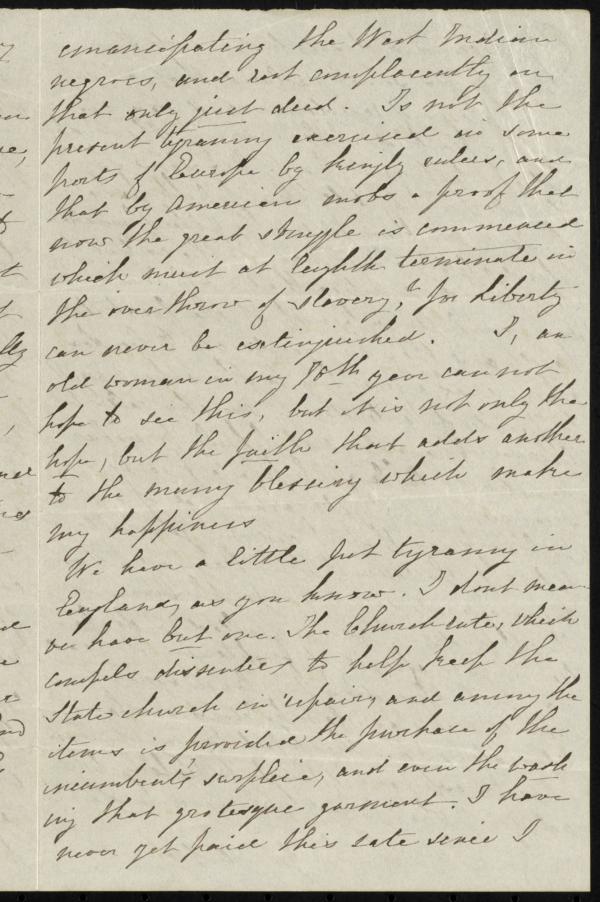 emancipating the West Indian
negroes, and rest complacently on
that only just deed. Is not the
present tyranny exercised in some
parts of Europe by kingly rulers, and
that by American mobs a proof that
now the great struggle is commenced
which must at length terminate in
the overthrow of slavery, for liberty
can never be extinguished. I, an
old woman in my 70th year can not
hope to see this, but it is not only the
hope, but the faith that adds another
to the many blessings which make
my happiness
We have a little pet tyranny in
England, as you know. I dont mean
we have but one. The Church rate, which
compels dissenters to help keep the
State church in repair, and among the
items is provided the purchase of the
incumbent's surplice, and even the wash
ing that grotesque garment. I have
never yet paid this rate since I